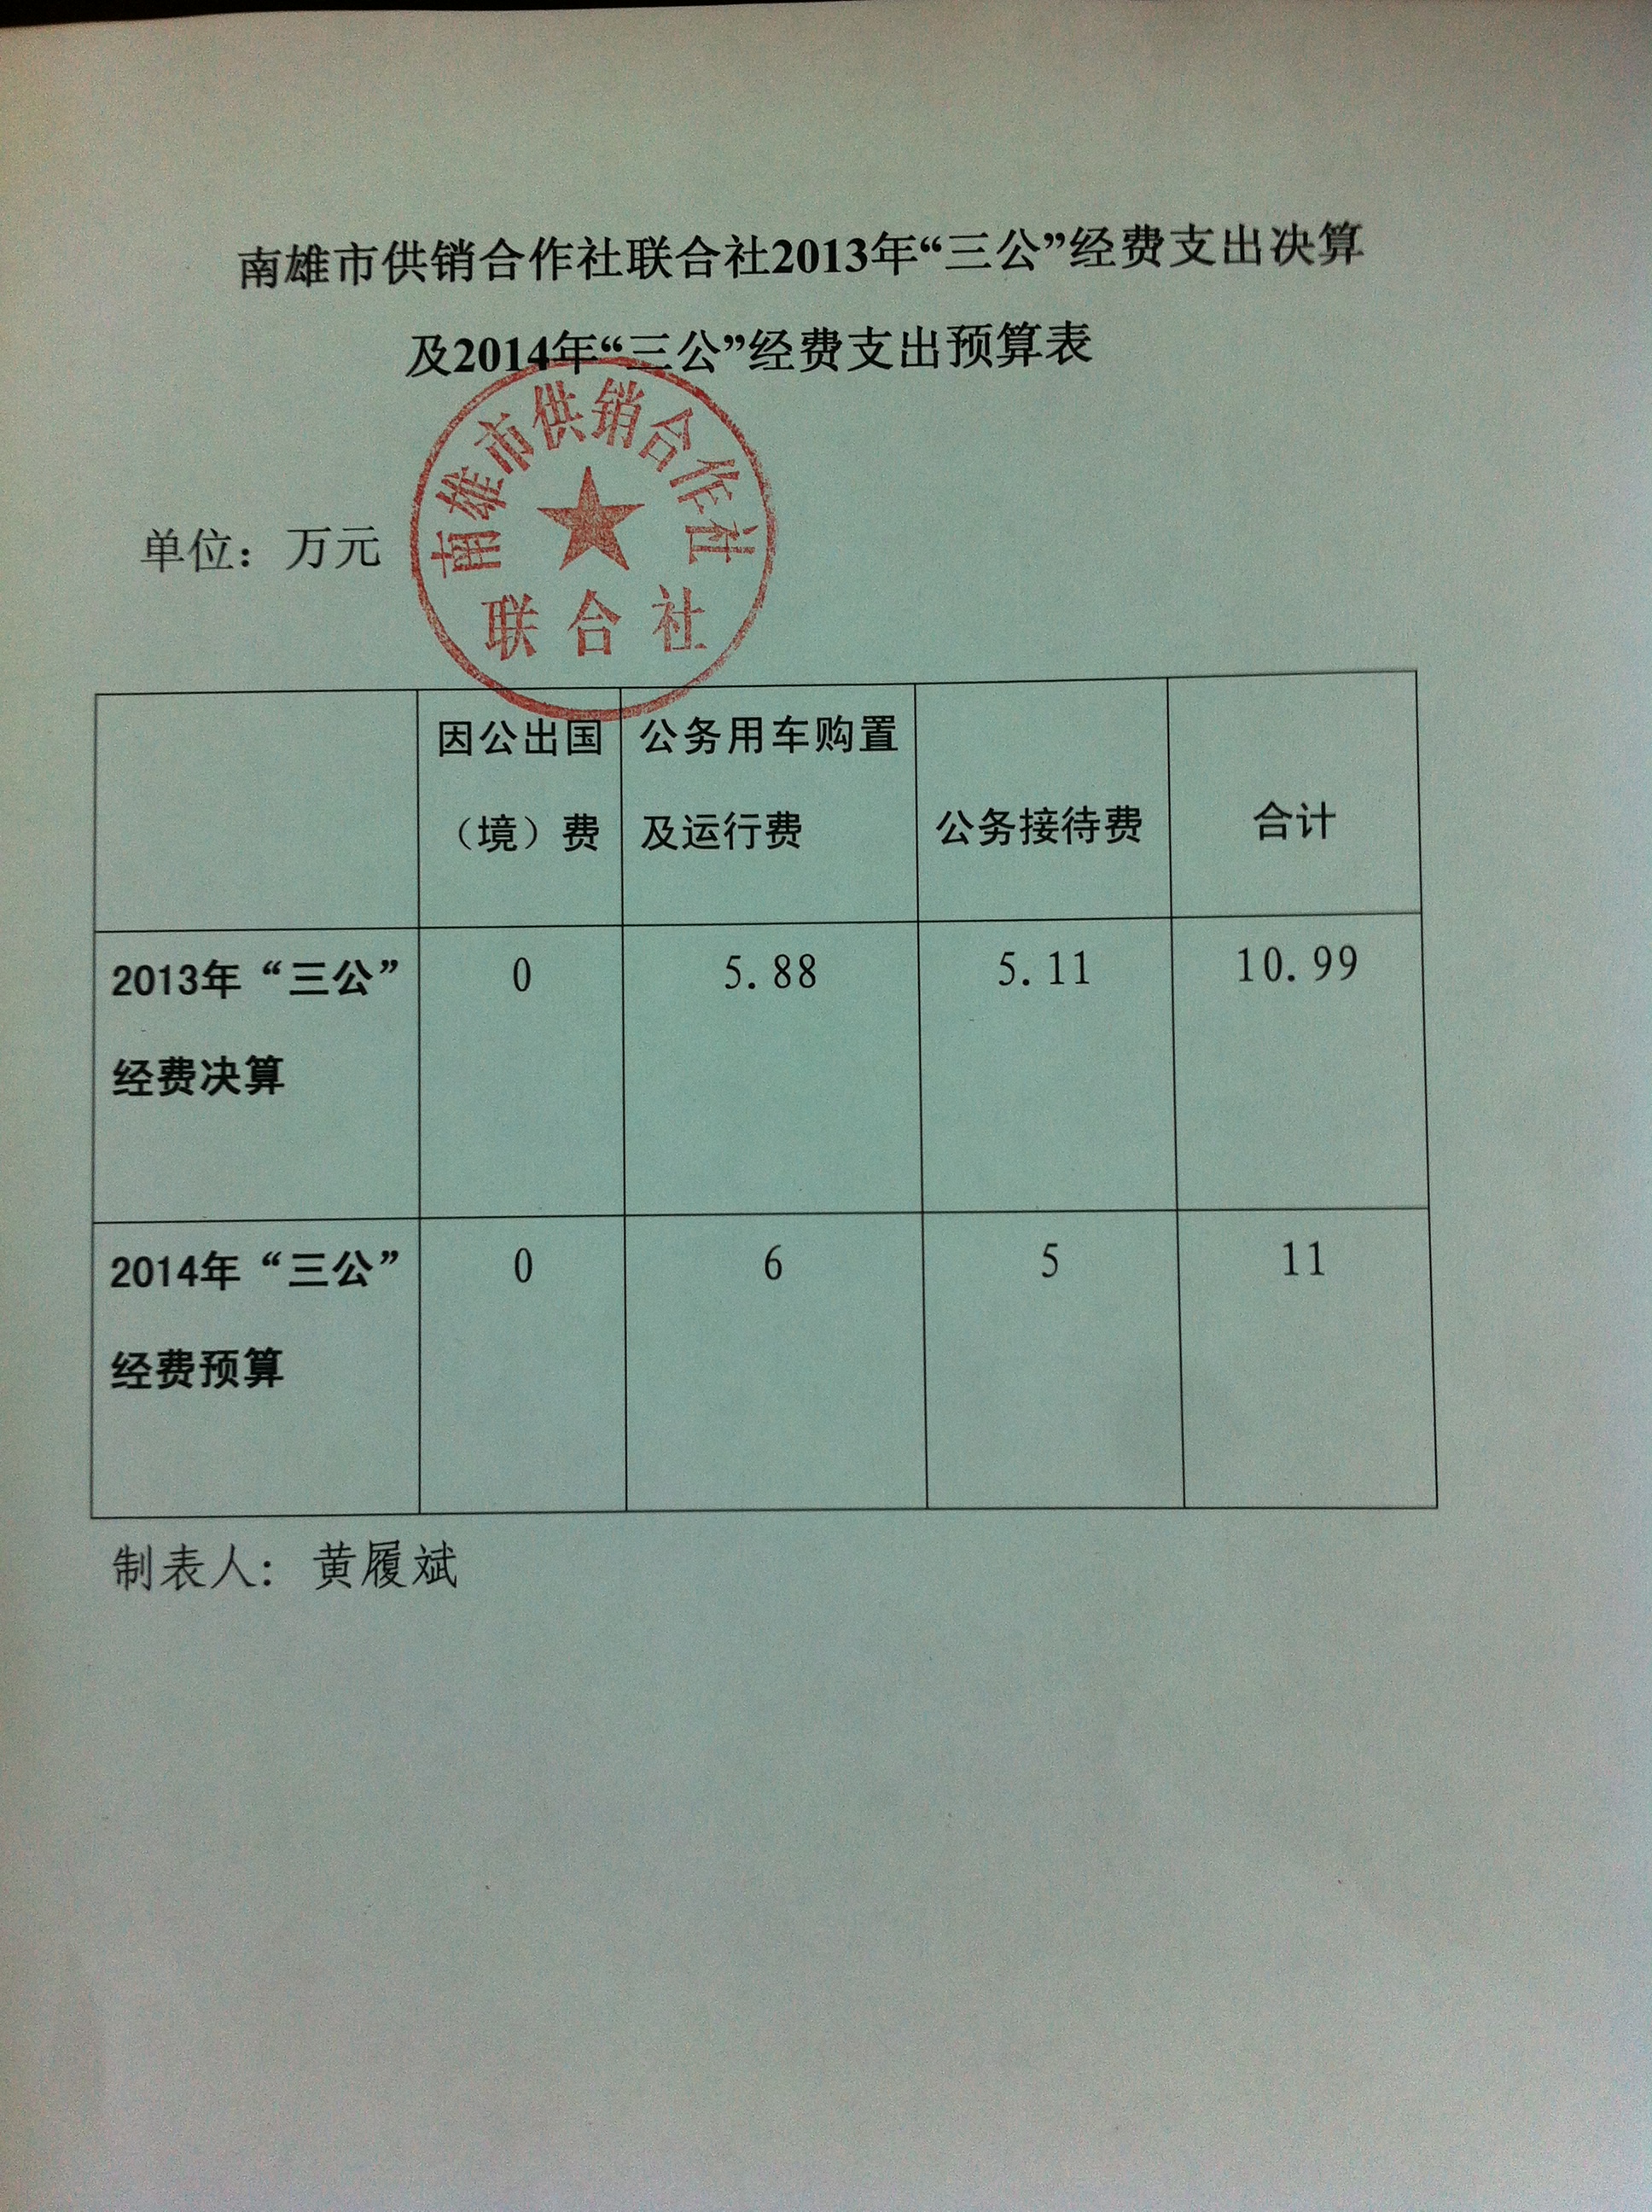 南雄市供销合作社联合社2013年“三公”经费支出决算
及2014年“三公”经费支出预算表
南雄市供销合作社
联合社
单位：万元
因公出国
（境）费
公务用车购置
及运行费
公务接待费
合计
2013年“三公”
经费决算
0
5.88
5.11
10.99
2014年“三公”
经费预算
0
6
5
11
制表人：黄履斌